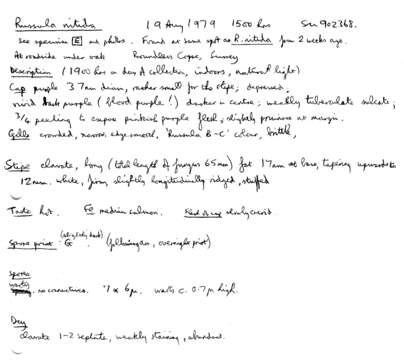 Russula nitida 19 Aug 1979 1500 hrs SU 902368.
See specimen E and photos. Found at same spot as R. nitida from 2 weeks ago.
At roadside under oak Roundless Copse, Surrey
Description (1900 hrs on day of collection, indoors, natural light)
Cap purple 37mm diam, rather small for the stipe, depressed,
vivid purple (blood purple!) darker in centre; weakly tuberculate sulcate;
3/4 peeling to expose pinkish purple flesh, slightly pruinose at margin.
Gills crowded, narrow, edge smooth, 'Russula B-C' colour, brittle,
Stipe clavate, long (total length of fungus 65mm) fat 17mm at base, tapering upwards to
12mm. white, firm, slightly longitudinally ridged, stuffed
Taste hot. Fe medium salmon. slowly
Spore print: G (slightly dark) (following am, overnight print)
Spores
warts no connectives. 7 x 6µ. warts c. 0.7µ high.
clavate 1-2 septate, weakly staining, abundant.